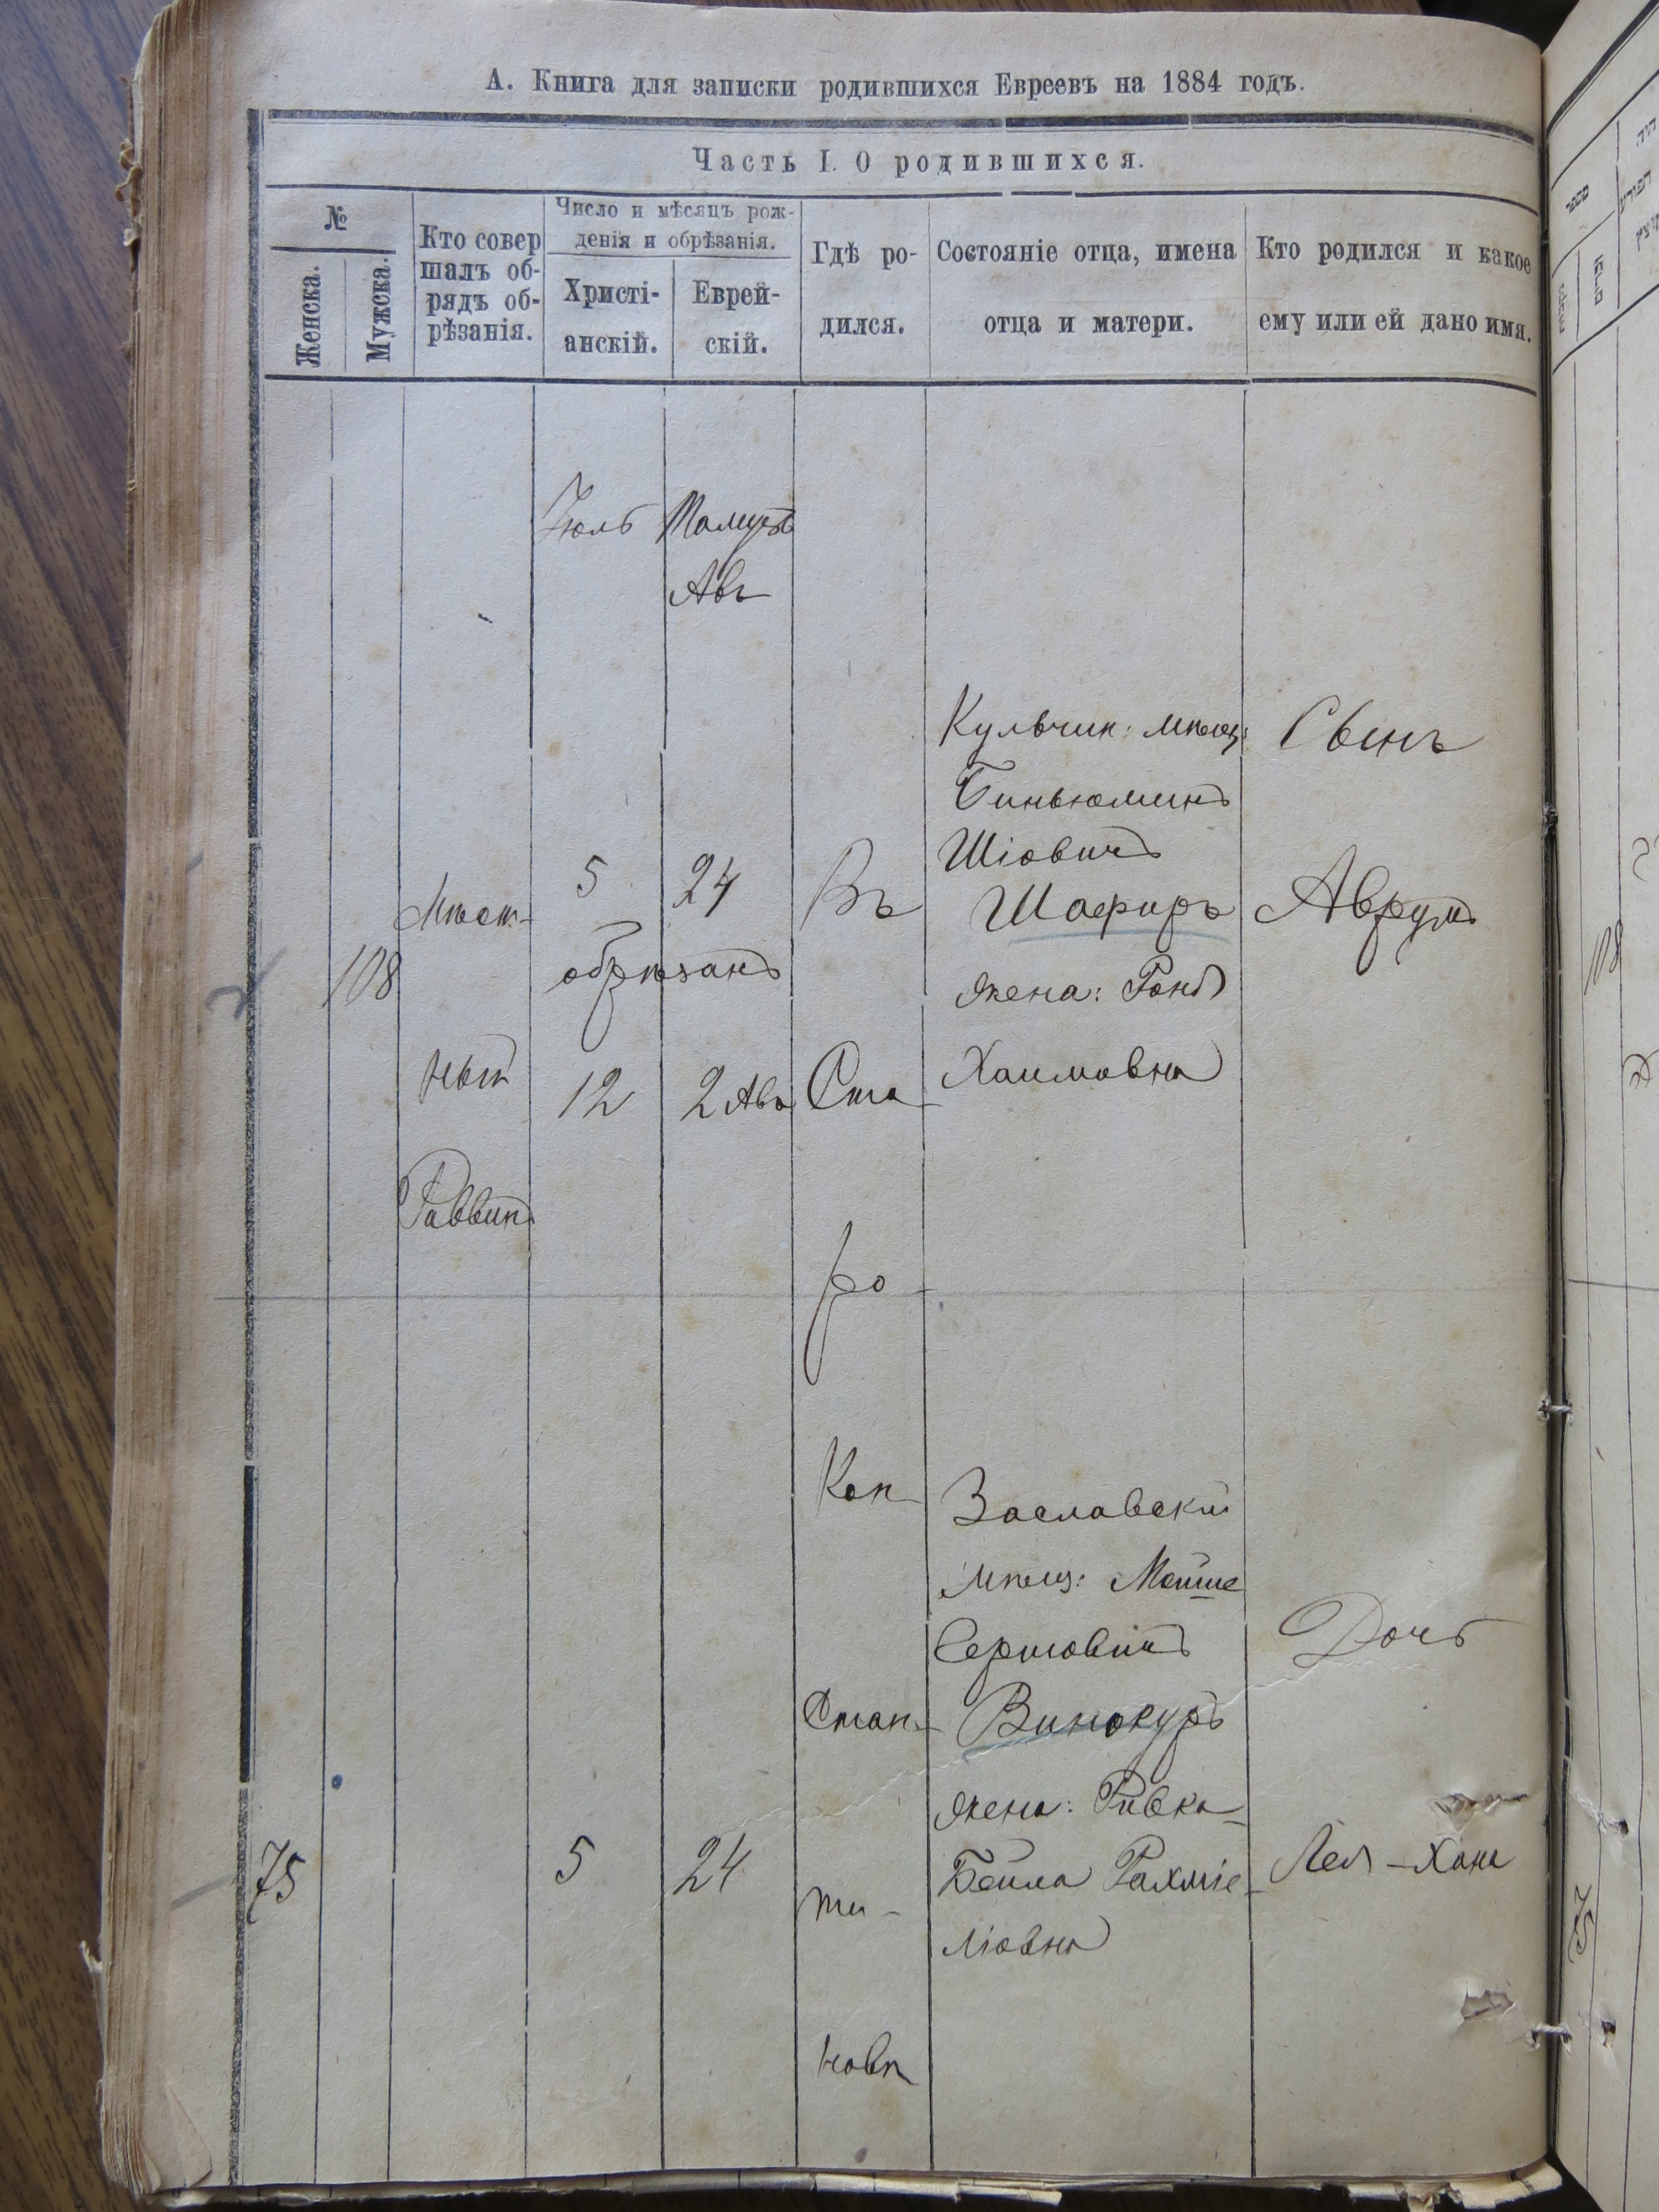 А. Книга для записки родившихся Евреевъ на 1884 годъ.
Часть I. О родившихся.
№
Женска.
Мужска.
Кто совер
шалъ об-
рядъ об-
рѣзанія.
Число и мѣсяцъ рож-
денія и обрѣзанія.
Христі-
анскій.
Еврей-
скій.
Гдѣ ро-
дился.
Состояніе отца, имена
отца и матери.
Кто родился и какое
ему или ей дано имя.
Іюль
Тамузъ
Авъ
108
Мѣст-
ный
Раввинъ
5
24
обрѣзанъ
12
2 Авъ
Въ
Ста-
ро-
Кон-
стан-
ти-
новѣ
Кульчин: мѣщ:
Биньюминъ
Шіовичъ
Шафиръ
жена:
Хаимовна
Сынъ
Аврумъ
75
5
24
Заславскій
мѣщ: Мойше
Винокуръ
жена: Ривка-
Бейла Рахміе-
ліовна
Дочь
Лея-Хана
108
75